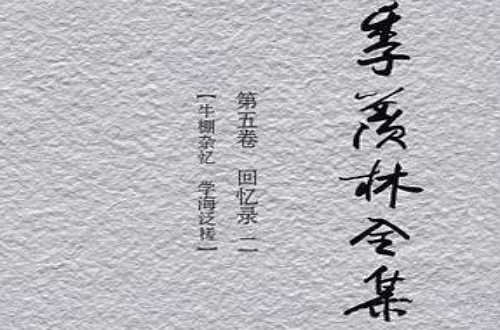 季羡林全集
第五卷 回忆录 二
【牛棚杂忆 学海泛槎】